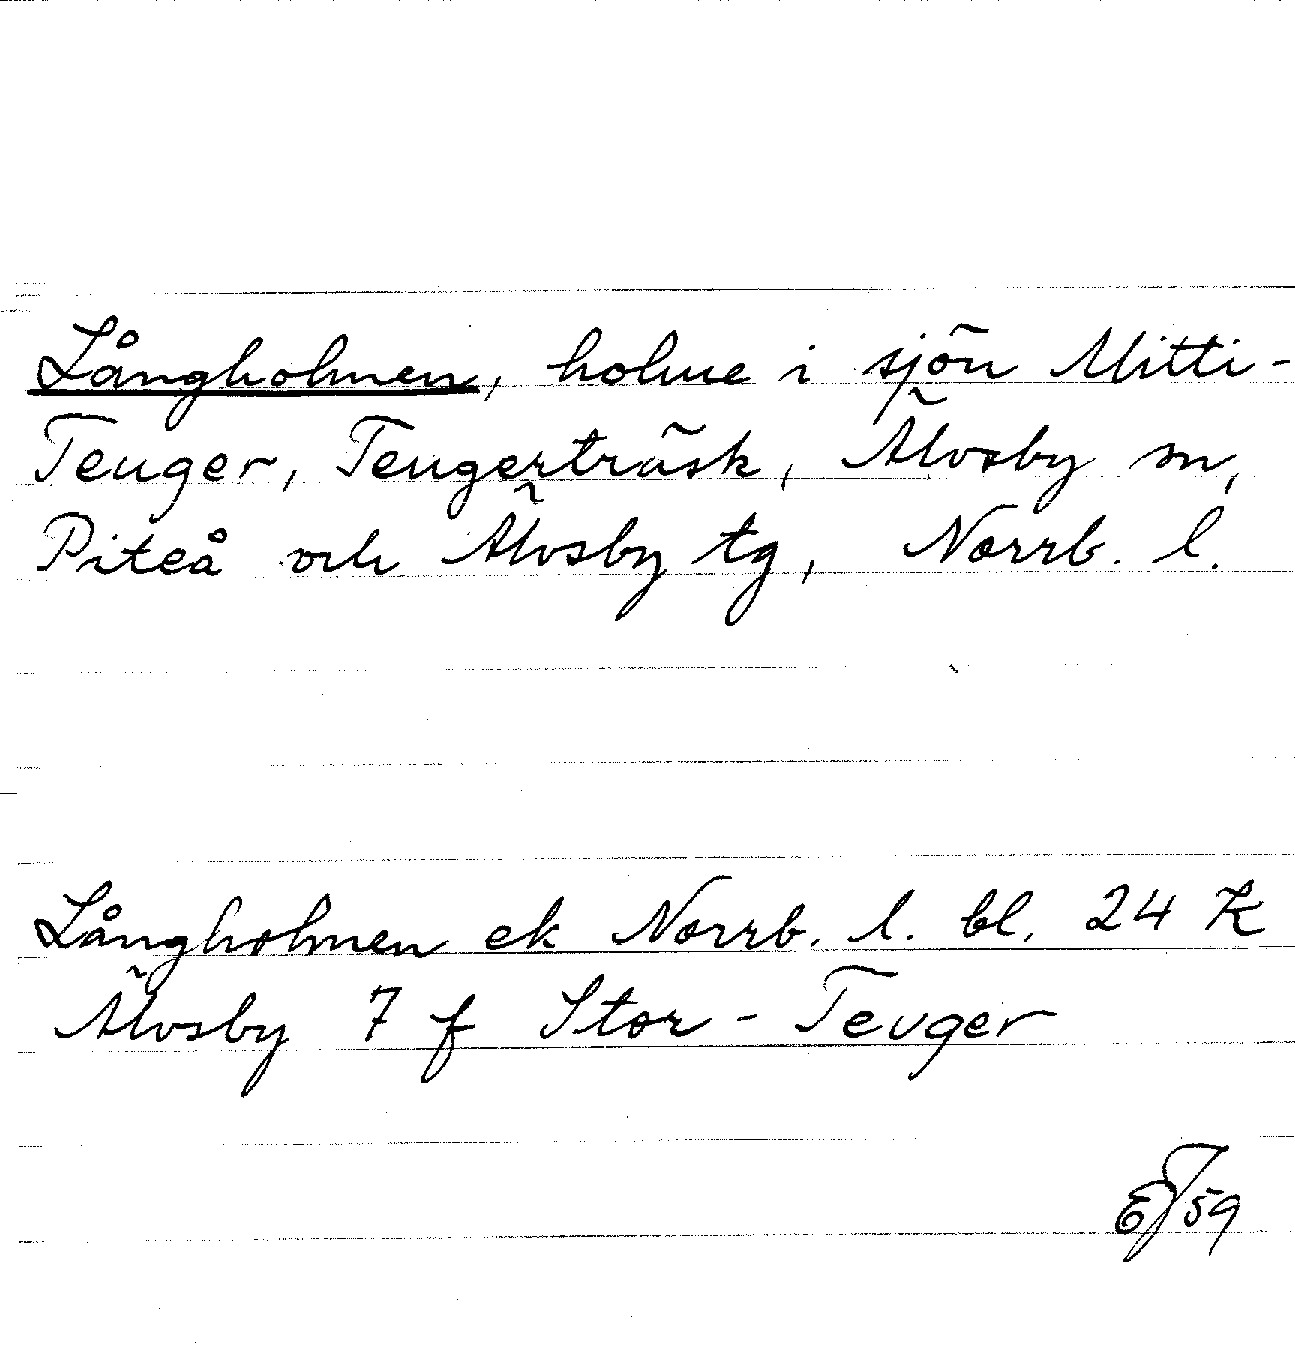 Långholmen, holme i sjön Mitti-
Teuger, Teugerträsk, Älvsby sn,
Piteå och Älvsby tg, Norrb. l.
Långholmen ek Norrb. l. bl. 24 K
Älvsby 7 f Stor-Teuger
59